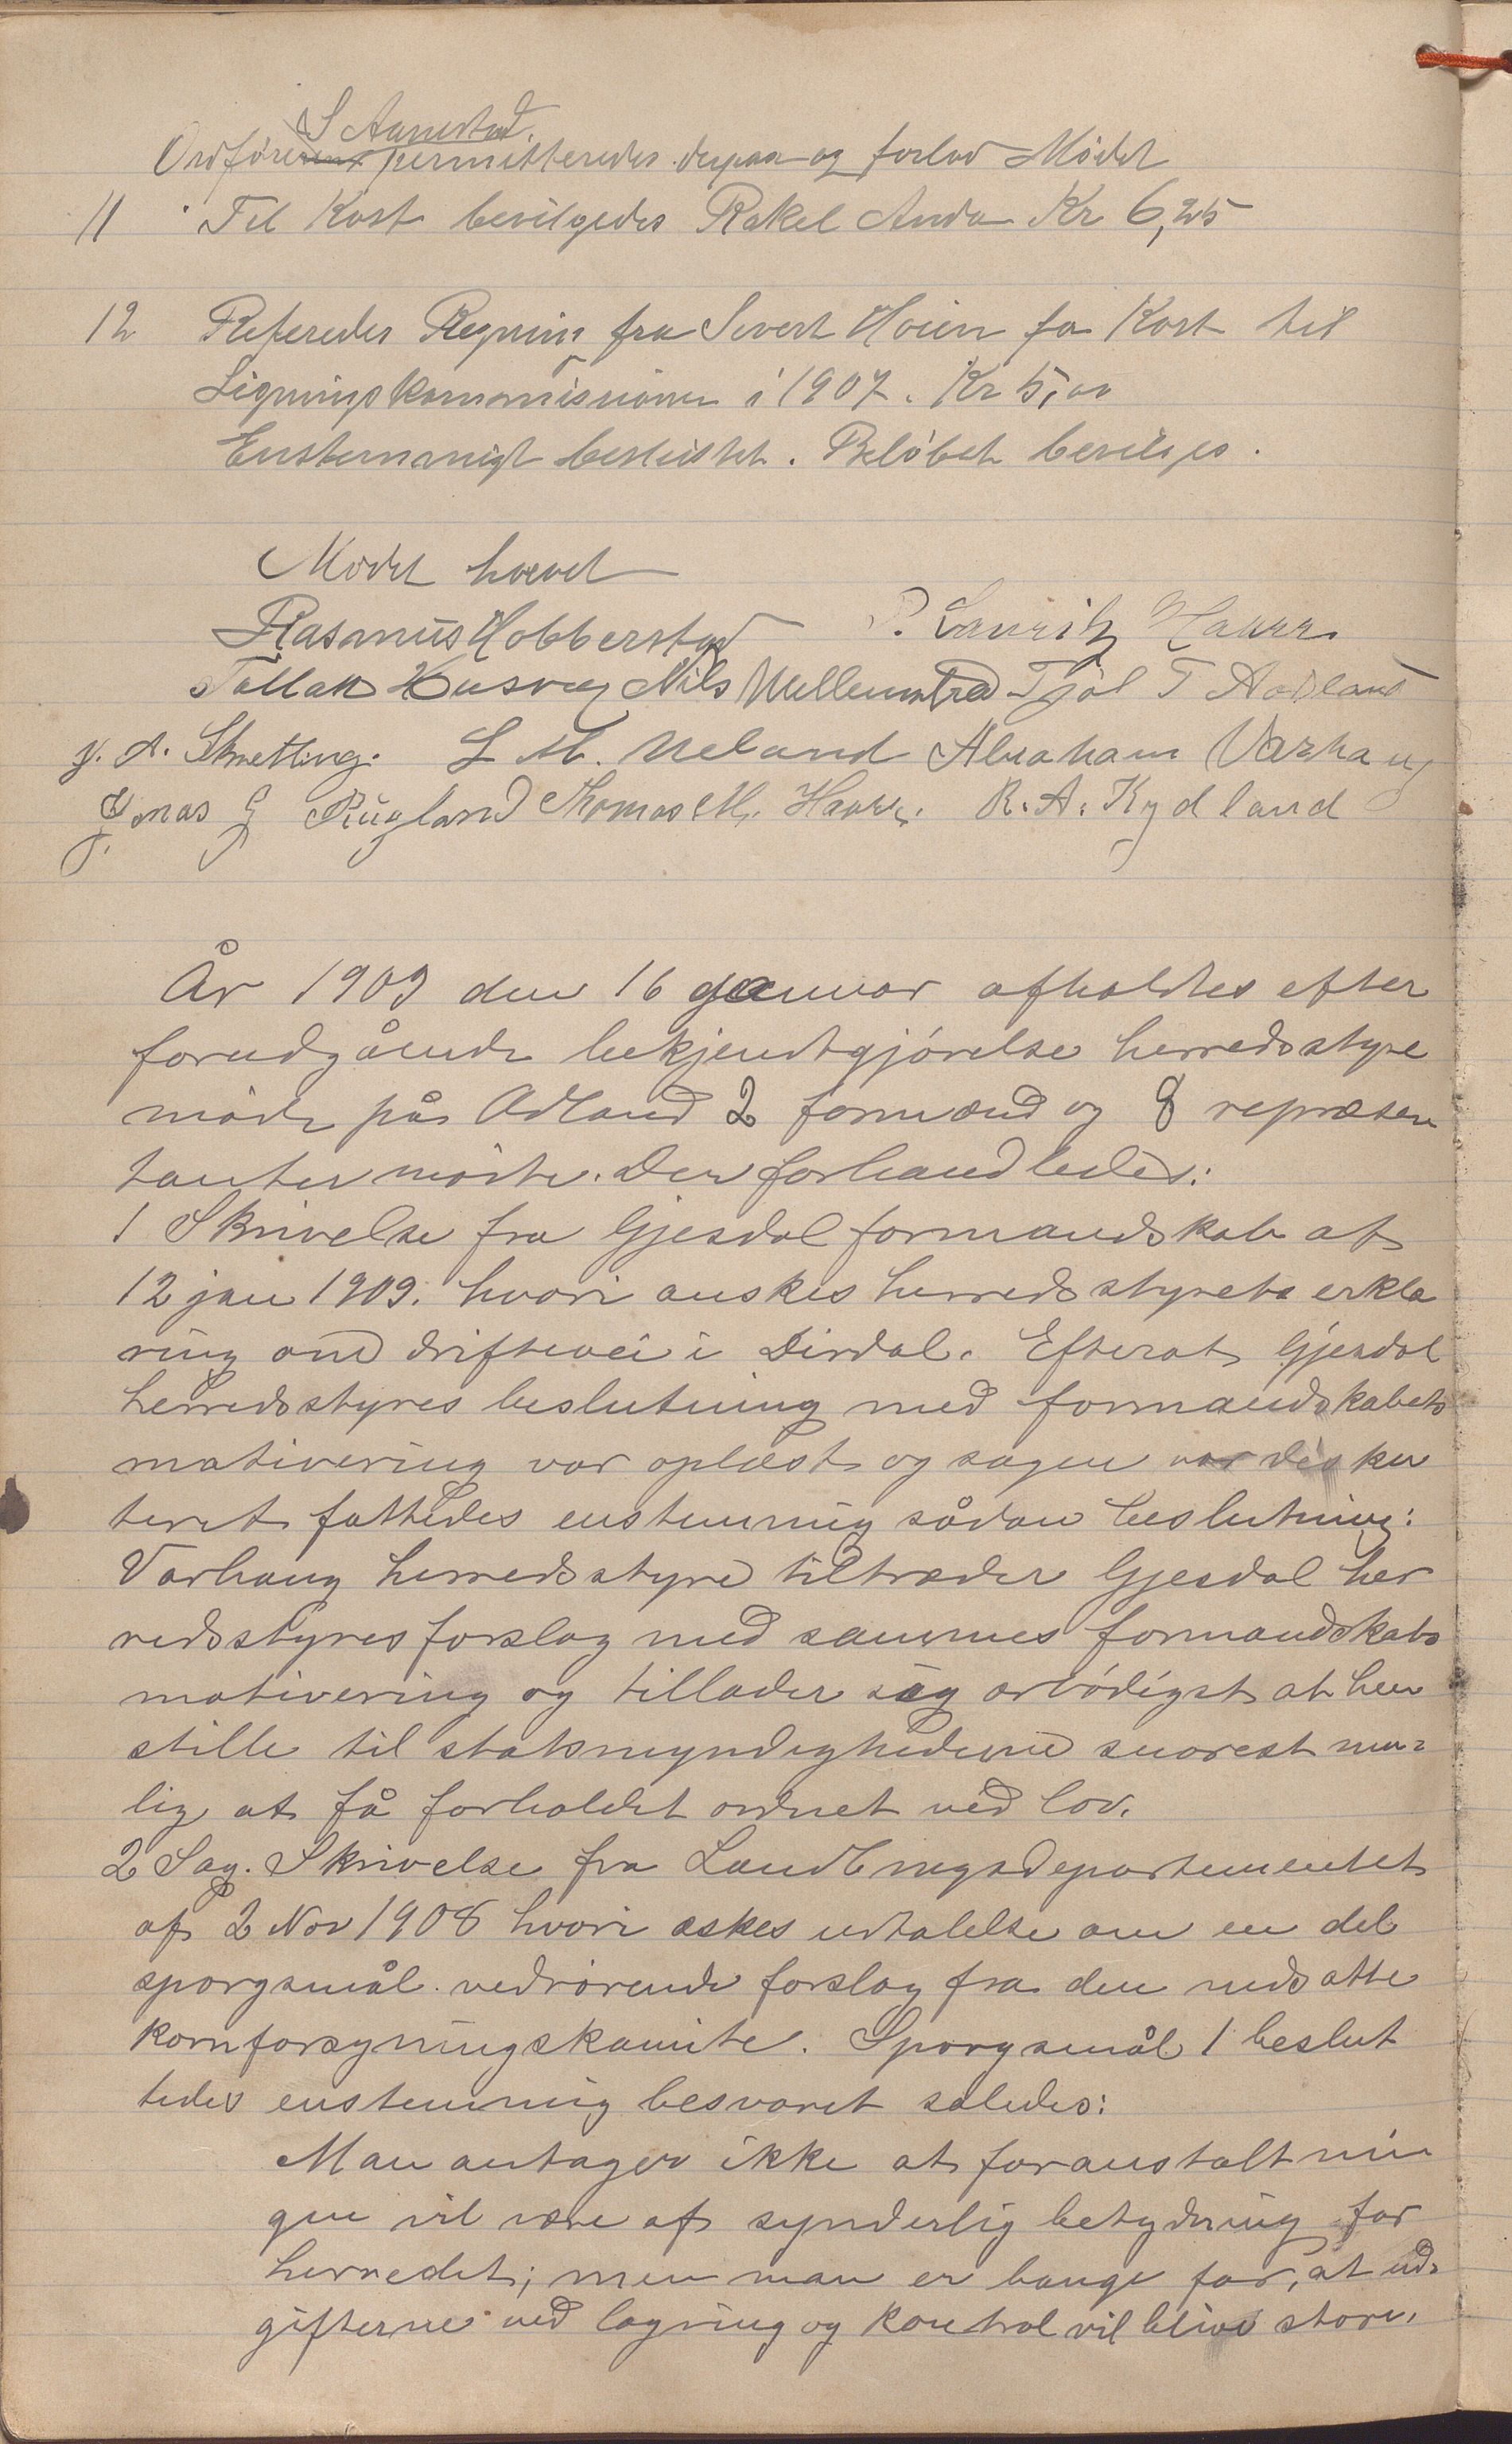 S Aanestad.
Ordföreren permitteredes derpaa og forlod Mødet
11 Til Kost bevilgedes Rakel Anda Kr 6,25
12 Refereredes Regning fra Sivert Hoien for Kost til
Ligningskommisionen i 1907. Kr 5,00
Enstemmigt besluttet. Beløbet bevilges.
Mødet hævet
Rasmus Hobberstad P. Lauritz Haarr
Tollak Husveg Nils Mellemstrad Tjöl T Aadland
J. A. Skretting. L M. Ueland Abraham Varhaug
Jonas G Rugland Thomas M. Haarr. R. A. Kydland
År 1909 den 16 januar afholdtes efter
forudgående bekjendtgjörelse herredsstyre
möde på Odland 2 formænd og 8 repræsen
tanter mödte. Der forhandledes:
1 Skrivelse fra Gjesdal formandskab af
12 jan 1909. hvori æskes herredsstyrets erklæ
ring om driftevei i Dirdal. Efterat Gjesdal
herredsstyres beslutning med formandskabets
motivering var oplæst og sagen var disku
teret fattedes enstemmig sådan beslutning:
Varhaug herredsstyre tiltræder Gjesdal her
redsstyres forslag med sammes formandskabs
motivering og tillader sig ærbödigst at hen
stille til statsmyndighederne snarest mu=
lig at få forholdet ordnet ved lov.
2 Sag. Skrivelse fra Landbrugsdepartementet
af 2 Nov 1908 hvori æskes udtalelse om en del
sporgsmål vedrörende forslag fra den nedsatte
kornforsyningskomite. Sporgsmål 1 beslut
tedes enstemmig besvaret således:
Man antager ikke at foranstaltnin
gen vil være af synderlig betydning for
herredet; men man er bange for, at ud=
gifterne ved lagring og kontrol vil blive store.